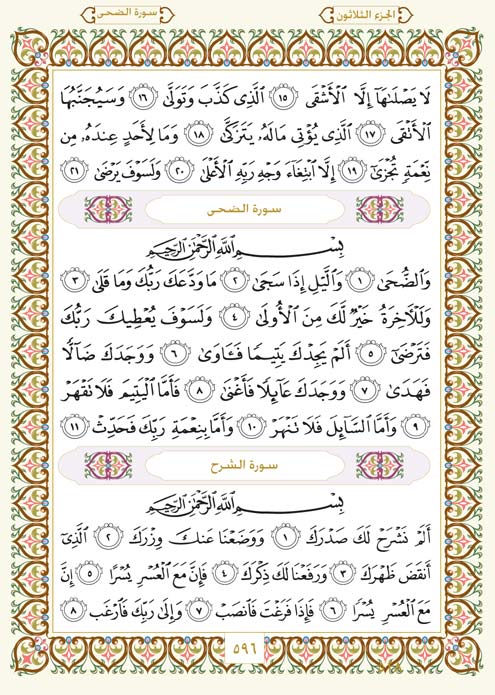 الجزء الثلاثون
سورة الضحى
لَا يَصْلَىٰهَآ إِلَّا ٱلْأَشْقَى ١٥ ٱلَّذِى كَذَّبَ وَتَوَلَّىٰ ١٦ وَسَيُجَنَّبُهَا
ٱلْأَتْقَى ١٧ ٱلَّذِى يُؤْتِى مَالَهُۥ يَتَزَكَّىٰ ١٨ وَمَا لِأَحَدٍ عِندَهُۥ مِن
نِّعْمَةٍ تُجْزَىٰٓ ١٩ إِلَّا ٱبْتِغَآءَ وَجْهِ رَبِّهِ ٱلْأَعْلَىٰ ٢٠ وَلَسَوْفَ يَرْضَىٰ ٢١
سورة الضحى
بِسْمِ ٱللَّهِ ٱلرَّحْمَٰنِ ٱلرَّحِيمِ
وَٱلضُّحَىٰ ١ وَٱلَّيْلِ إِذَا سَجَىٰ ٢ مَا وَدَّعَكَ رَبُّكَ وَمَا قَلَىٰ ٣
وَلَلْـَٔاخِرَةُ خَيْرٌ لَّكَ مِنَ ٱلْأُولَىٰ ٤ وَلَسَوْفَ يُعْطِيكَ رَبُّكَ
فَتَرْضَىٰٓ ٥ أَلَمْ يَجِدْكَ يَتِيمًا فَـَٔاوَىٰ ٦ وَوَجَدَكَ ضَآلًّا
فَهَدَىٰ ٧ وَوَجَدَكَ عَآئِلًا فَأَغْنَىٰ ٨ فَأَمَّا ٱلْيَتِيمَ فَلَا تَقْهَرْ
٩ وَأَمَّا ٱلسَّآئِلَ فَلَا تَنْهَرْ ١٠ وَأَمَّا بِنِعْمَةِ رَبِّكَ فَحَدِّثْ ١١
سورة الشرح
بِسْمِ ٱللَّهِ ٱلرَّحْمَٰنِ ٱلرَّحِيمِ
أَلَمْ نَشْرَحْ لَكَ صَدْرَكَ ١ وَوَضَعْنَا عَنكَ وِزْرَكَ ٢ ٱلَّذِىٓ
أَنقَضَ ظَهْرَكَ ٣ وَرَفَعْنَا لَكَ ذِكْرَكَ ٤ فَإِنَّ مَعَ ٱلْعُسْرِ يُسْرًا ٥ إِنَّ
مَعَ ٱلْعُسْرِ يُسْرًا ٦ فَإِذَا فَرَغْتَ فَٱنصَبْ ٧ وَإِلَىٰ رَبِّكَ فَٱرْغَب ٨
٥٩٦